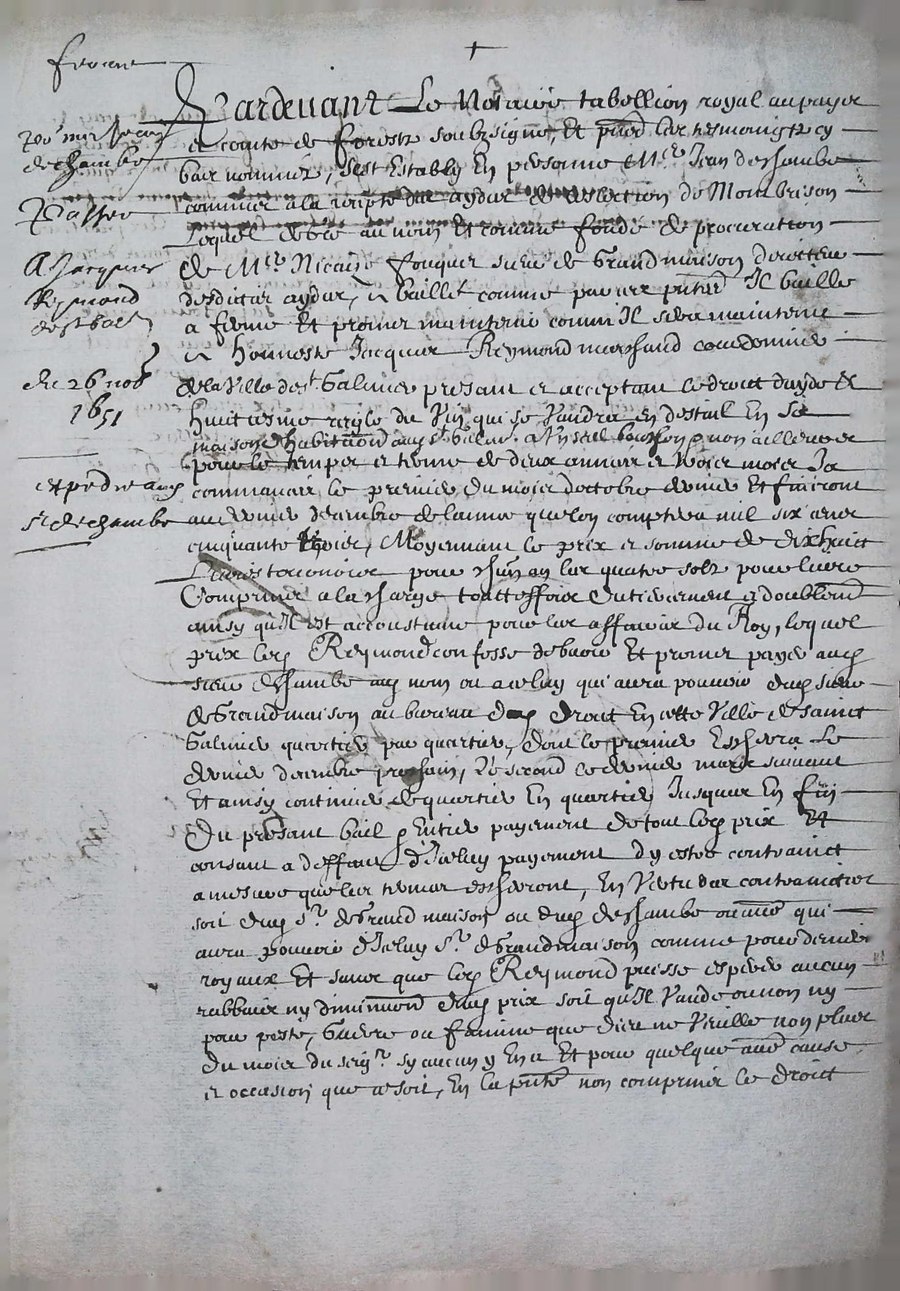 ferme
+
Pour mre Jean
dechambe
Passée
A Jacques
Reymond
de St Galmier
Du 26 nobre
1651
expedie aud
sr dechambe
Pardevant Le Notaire tabellion royal au paÿs
et comté de forestz soubzsigné, Et pnts les tesmoingtz cy
bas nommés, s'est Estably En personne Mre Jean deschambe
commis a la recepte des aydes de eslection de Montbrison
Lequel de gré au nom Et comme fondé de procuration
de Mre Nicaise fouquer sieur de Grandmaison directeur
desdittes aydes, a baillé comme par ces pntes Il baille
a ferme Et promet maintenir comm Il sera maintenir
a Honneste Jacques Reymond marchand
de la Ville de St Galmier presant et acceptant le droict dayde &
huictiesme reiglé du Vin qui se Vandra en destail En sa
maison d'habitation aud St Galmier non ailleurs et
pour le temps et terme de deux années et trois mois Ja
commancés le premier du mois doctobre dernier Et finiront
au dernier decembre de lannée quelon comptera mil six cens
cinquante trois, Moyennant le prix et somme de dix huict
Livres tournoises pour chun an les quatre solz pour livre
Comprins a la charge touttesfois du tiercement & doublemt
ainsy qu'Il est accoustumé pour les affaires du Roy, lequel
prix led Reymond confesse debvoir Et promet payer aud
sieur deschambe aud nom ou a celuy qui aura pouvoir dud sieur
de Grandmaison au bureau dud droict En cette Ville de sainct
Galmier quartier par quartier, dont le premier Escherra Le
dernier decembre prochain, Le second le dernier mars suivant
Et ainsy continuer de quartier En quartier Jusques En fin
Du presant bail & Entier payement de tout led prix Et
consant a deffaut d'Iceluy payement dy estre contrainct
a mesure que les termes escherront, En Vertu des contrainctes
soit dud Sr de Grand maison ou dud deschambe ou autre qui
aura pouvoir d'Iceluy Sr de Grandmaison comme pour deniers
royaux Et sans que led Reymond puisse esperer aucun
rabbais ny diminuon dud prix soit qu'Il Vande ou non ny
pour peste, Guerre ou famine que dieu ne Veuille non plus
du mois du seigr sy aucun y En a Et pour quelque autre cause
et occasion que ce soit, En la pnte non comprins le droict